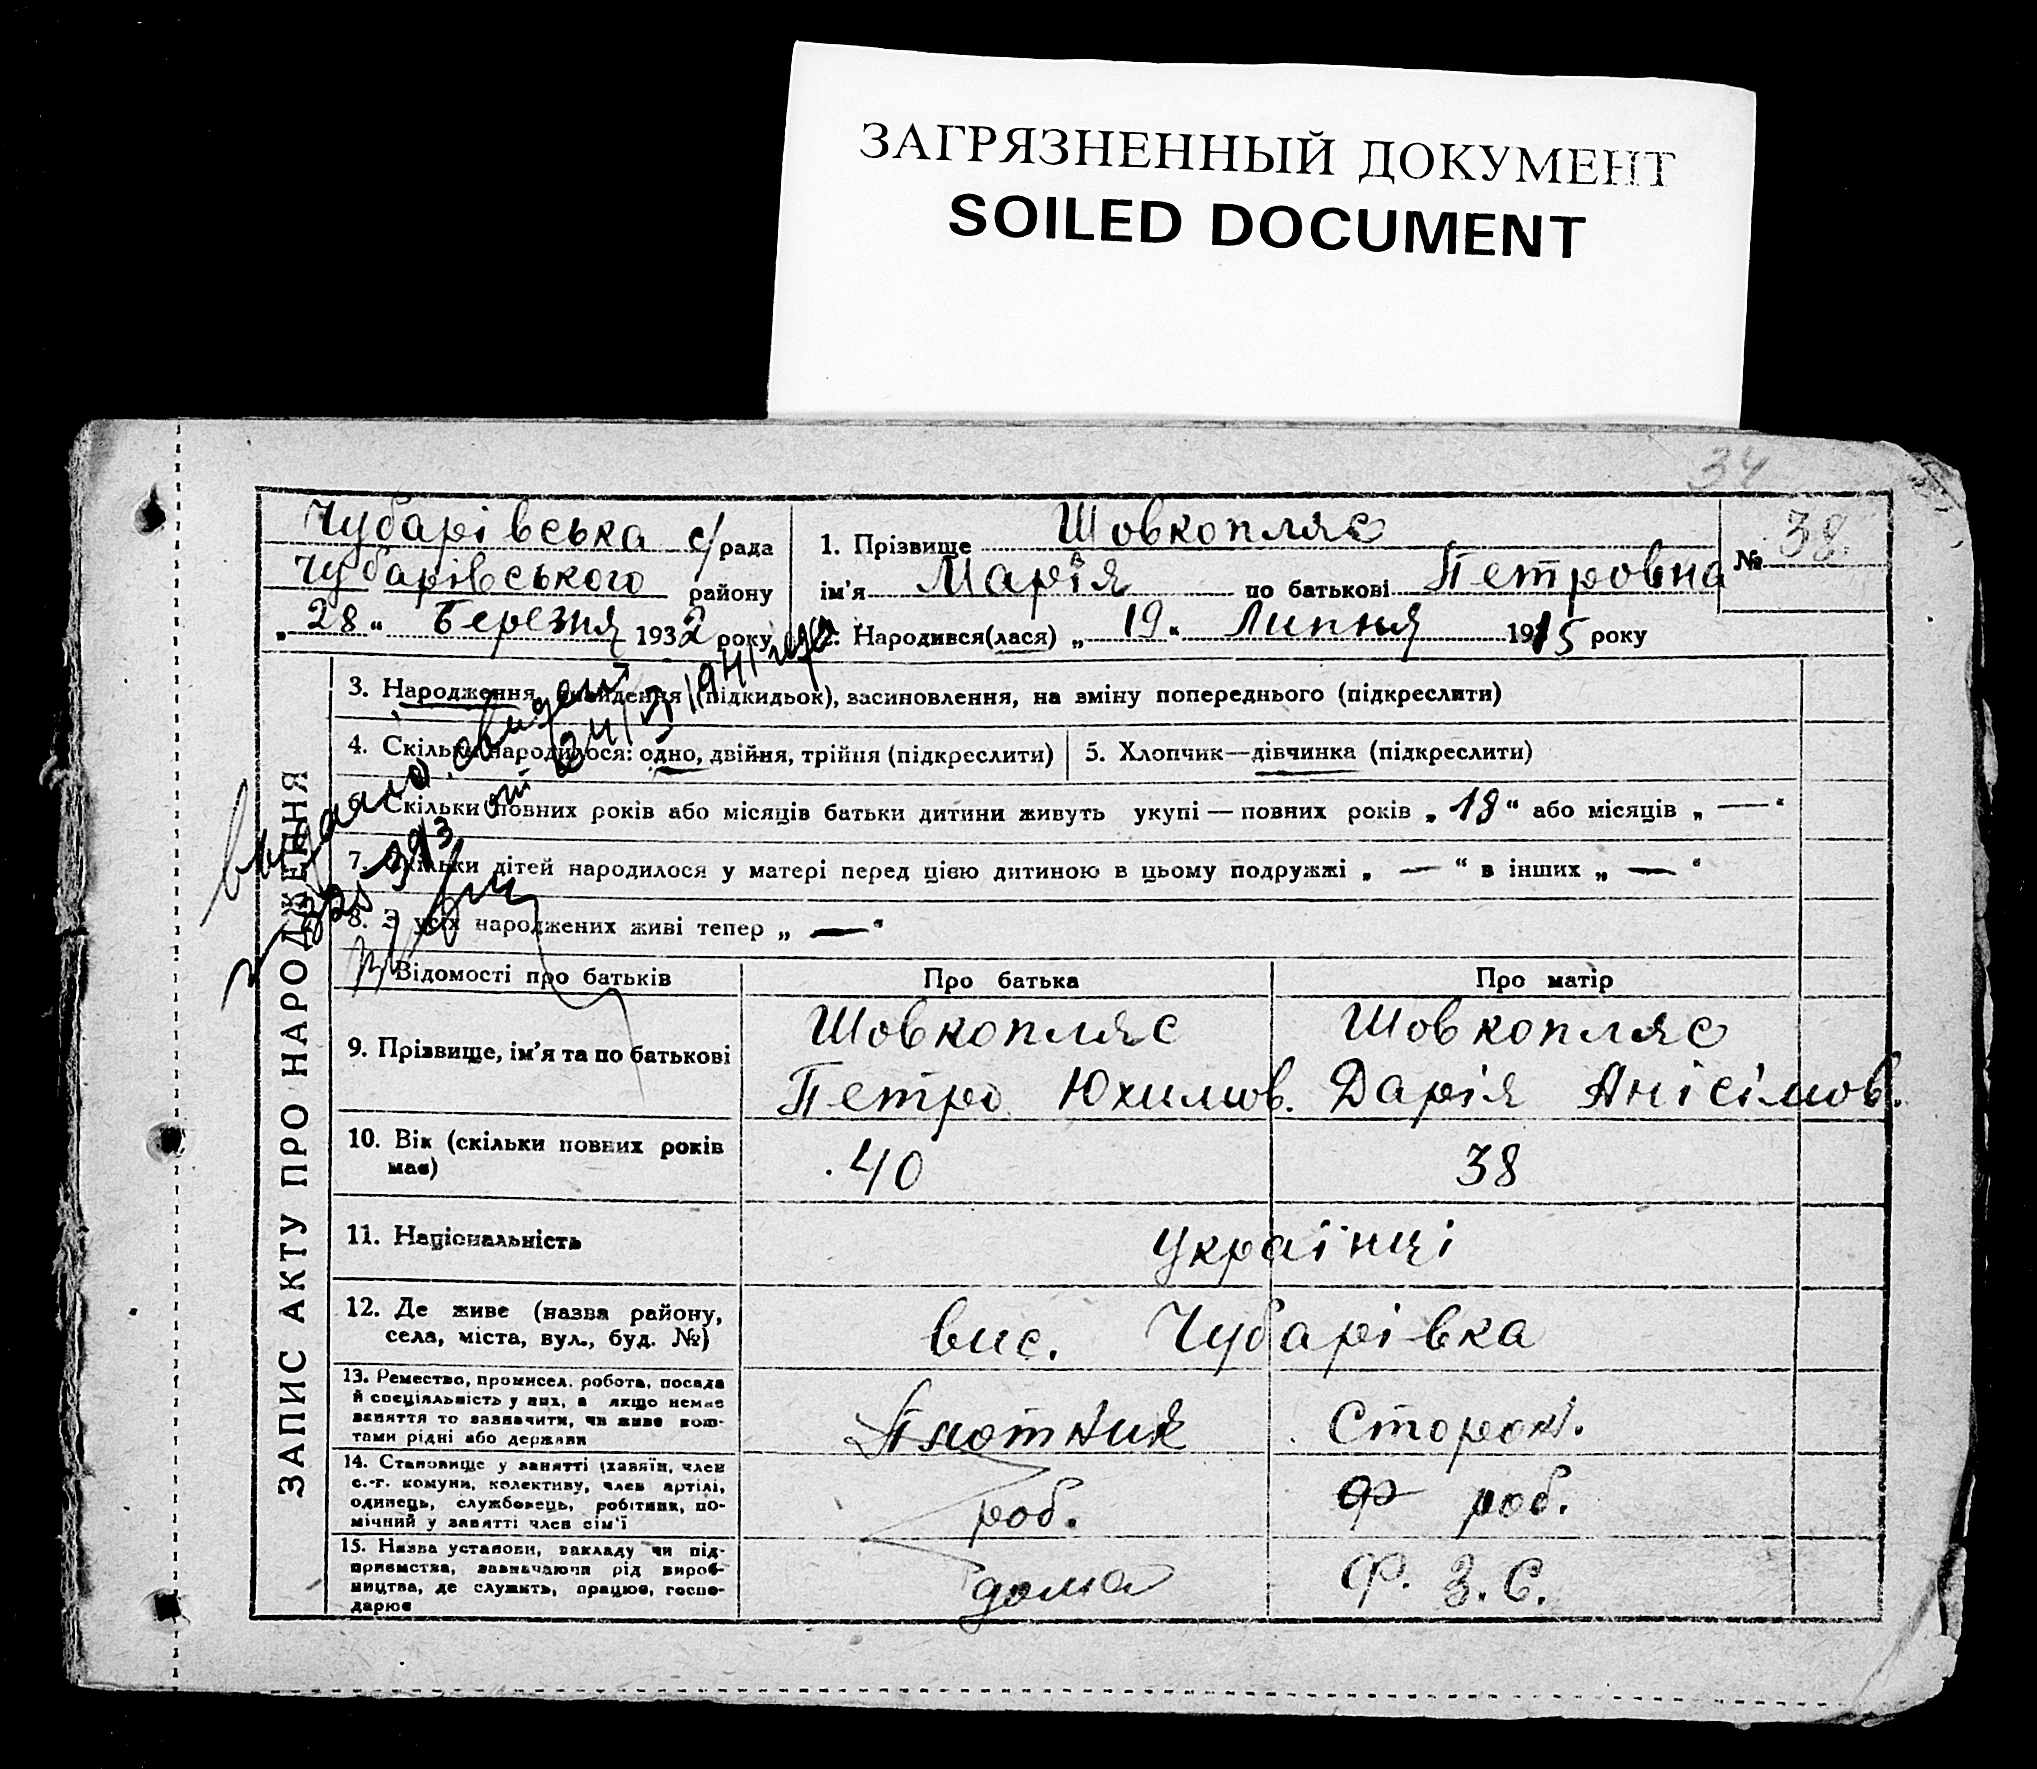 ЗАГРЯЗНЕННЫЙ ДОКУМЕНТ
SOILED DOCUMENT
34
Чубарівська с/рада
Чубарівського району
„28“ Березня 1932 року
1. Прізвище Шовкопляс
ім'я Марія по батькові Петровна
№ 38
2. Народився(лася) „19“ Липня 1915 року
ЗАПИС АКТУ ПРО НАРОДЖЕННЯ
3. Народження, знайдення (підкидьок), засиновлення, на зміну попереднього (підкреслити)
4. Скільки народилося: одно, двійня, трійня (підкреслити)
5. Хлопчик—дівчинка (підкреслити)
6. Скільки повних років або місяців батьки дитини живуть укупі — повних років „18“ або місяців „—“
7. Скільки дітей народилося у матері перед цією дитиною в цьому подружжі „—“ в інших „—“
8. З усіх народжених живі тепер „—“
Відомості про батьків
Про батька
Про матір
9. Прізвище, ім'я та по батькові
Шовкопляс
Петро Юхимов.
Шовкопляс
Дарія Анісімов.
10. Вік (скільки повних років має)
40
38
11. Національність
Українці
12. Де живе (назва району,
села, міста, вул., буд. №)
вис. Чубарівка
13. Ремество, промисел, робота, посада
й спеціяльність у них, а якщо немає
заняття то зазначити, чи живе кош-
тами рідні або держави
Плотник
Сторож.
14. Становище у занятті (хазяїн, член
с.-г. комуни, колективу, член артілі,
одинець, службовець, робітник, по-
мічний у занятті член сім'ї
роб.
роб.
15. Назва установи, закладу чи під-
приємства, зазначаючи рід вироб-
ництва, де служить, працює, госпо-
дарює
дома
Ф. З. С.
видано свидет
от 24/3 1941 года